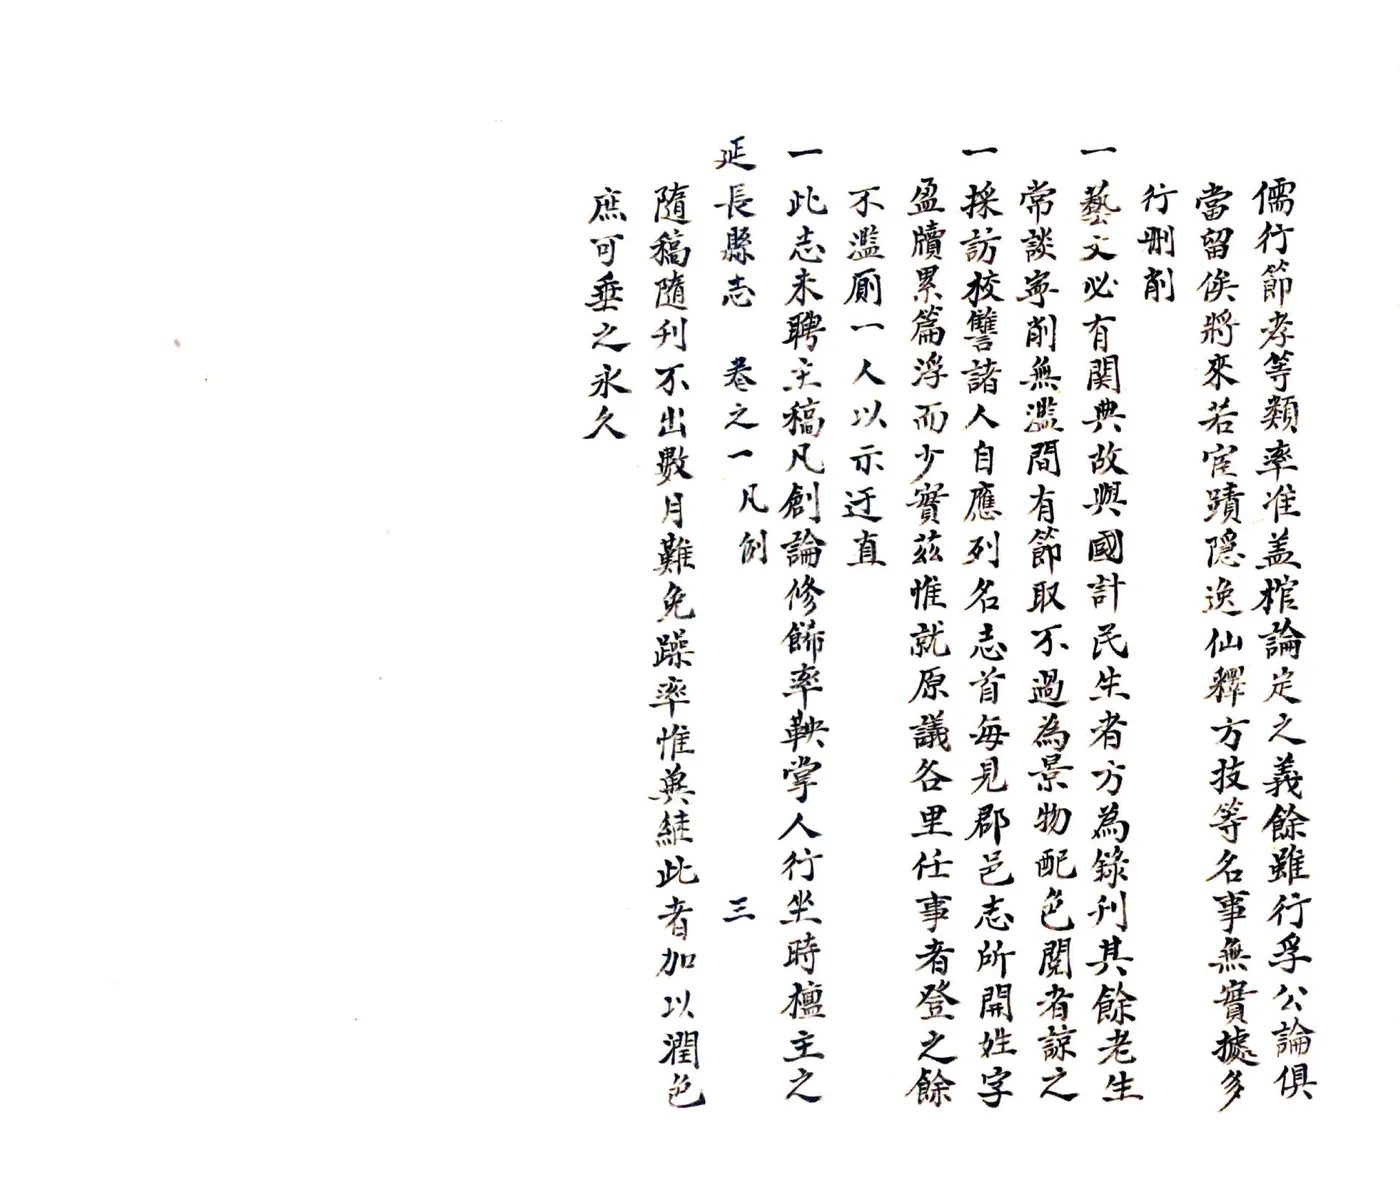 儒行節孝等類率准盖棺論定之義餘雖行孚公論俱
當留俟將來若宦蹟隠逸仙釋方技等名事無實據多
行刪削
一藝文必有関典故與國計民生者方為錄刋其餘老生
常談寧削無濫間有節取不過為景物配色閱者諒之
一採訪校讐諸人自應列名志首每見郡邑志所開姓字
盈牘累篇浮而少實茲惟就原議各里任事者登之餘
不濫厠一人以示迂直
一此志未聘主稿凡創論修餙率鞅掌人行坐時檀主之
延長縣志 卷之一 凡例 三
隨稿隨刋不出數月難免躁率惟兾継此者加以潤色
庶可垂之永久